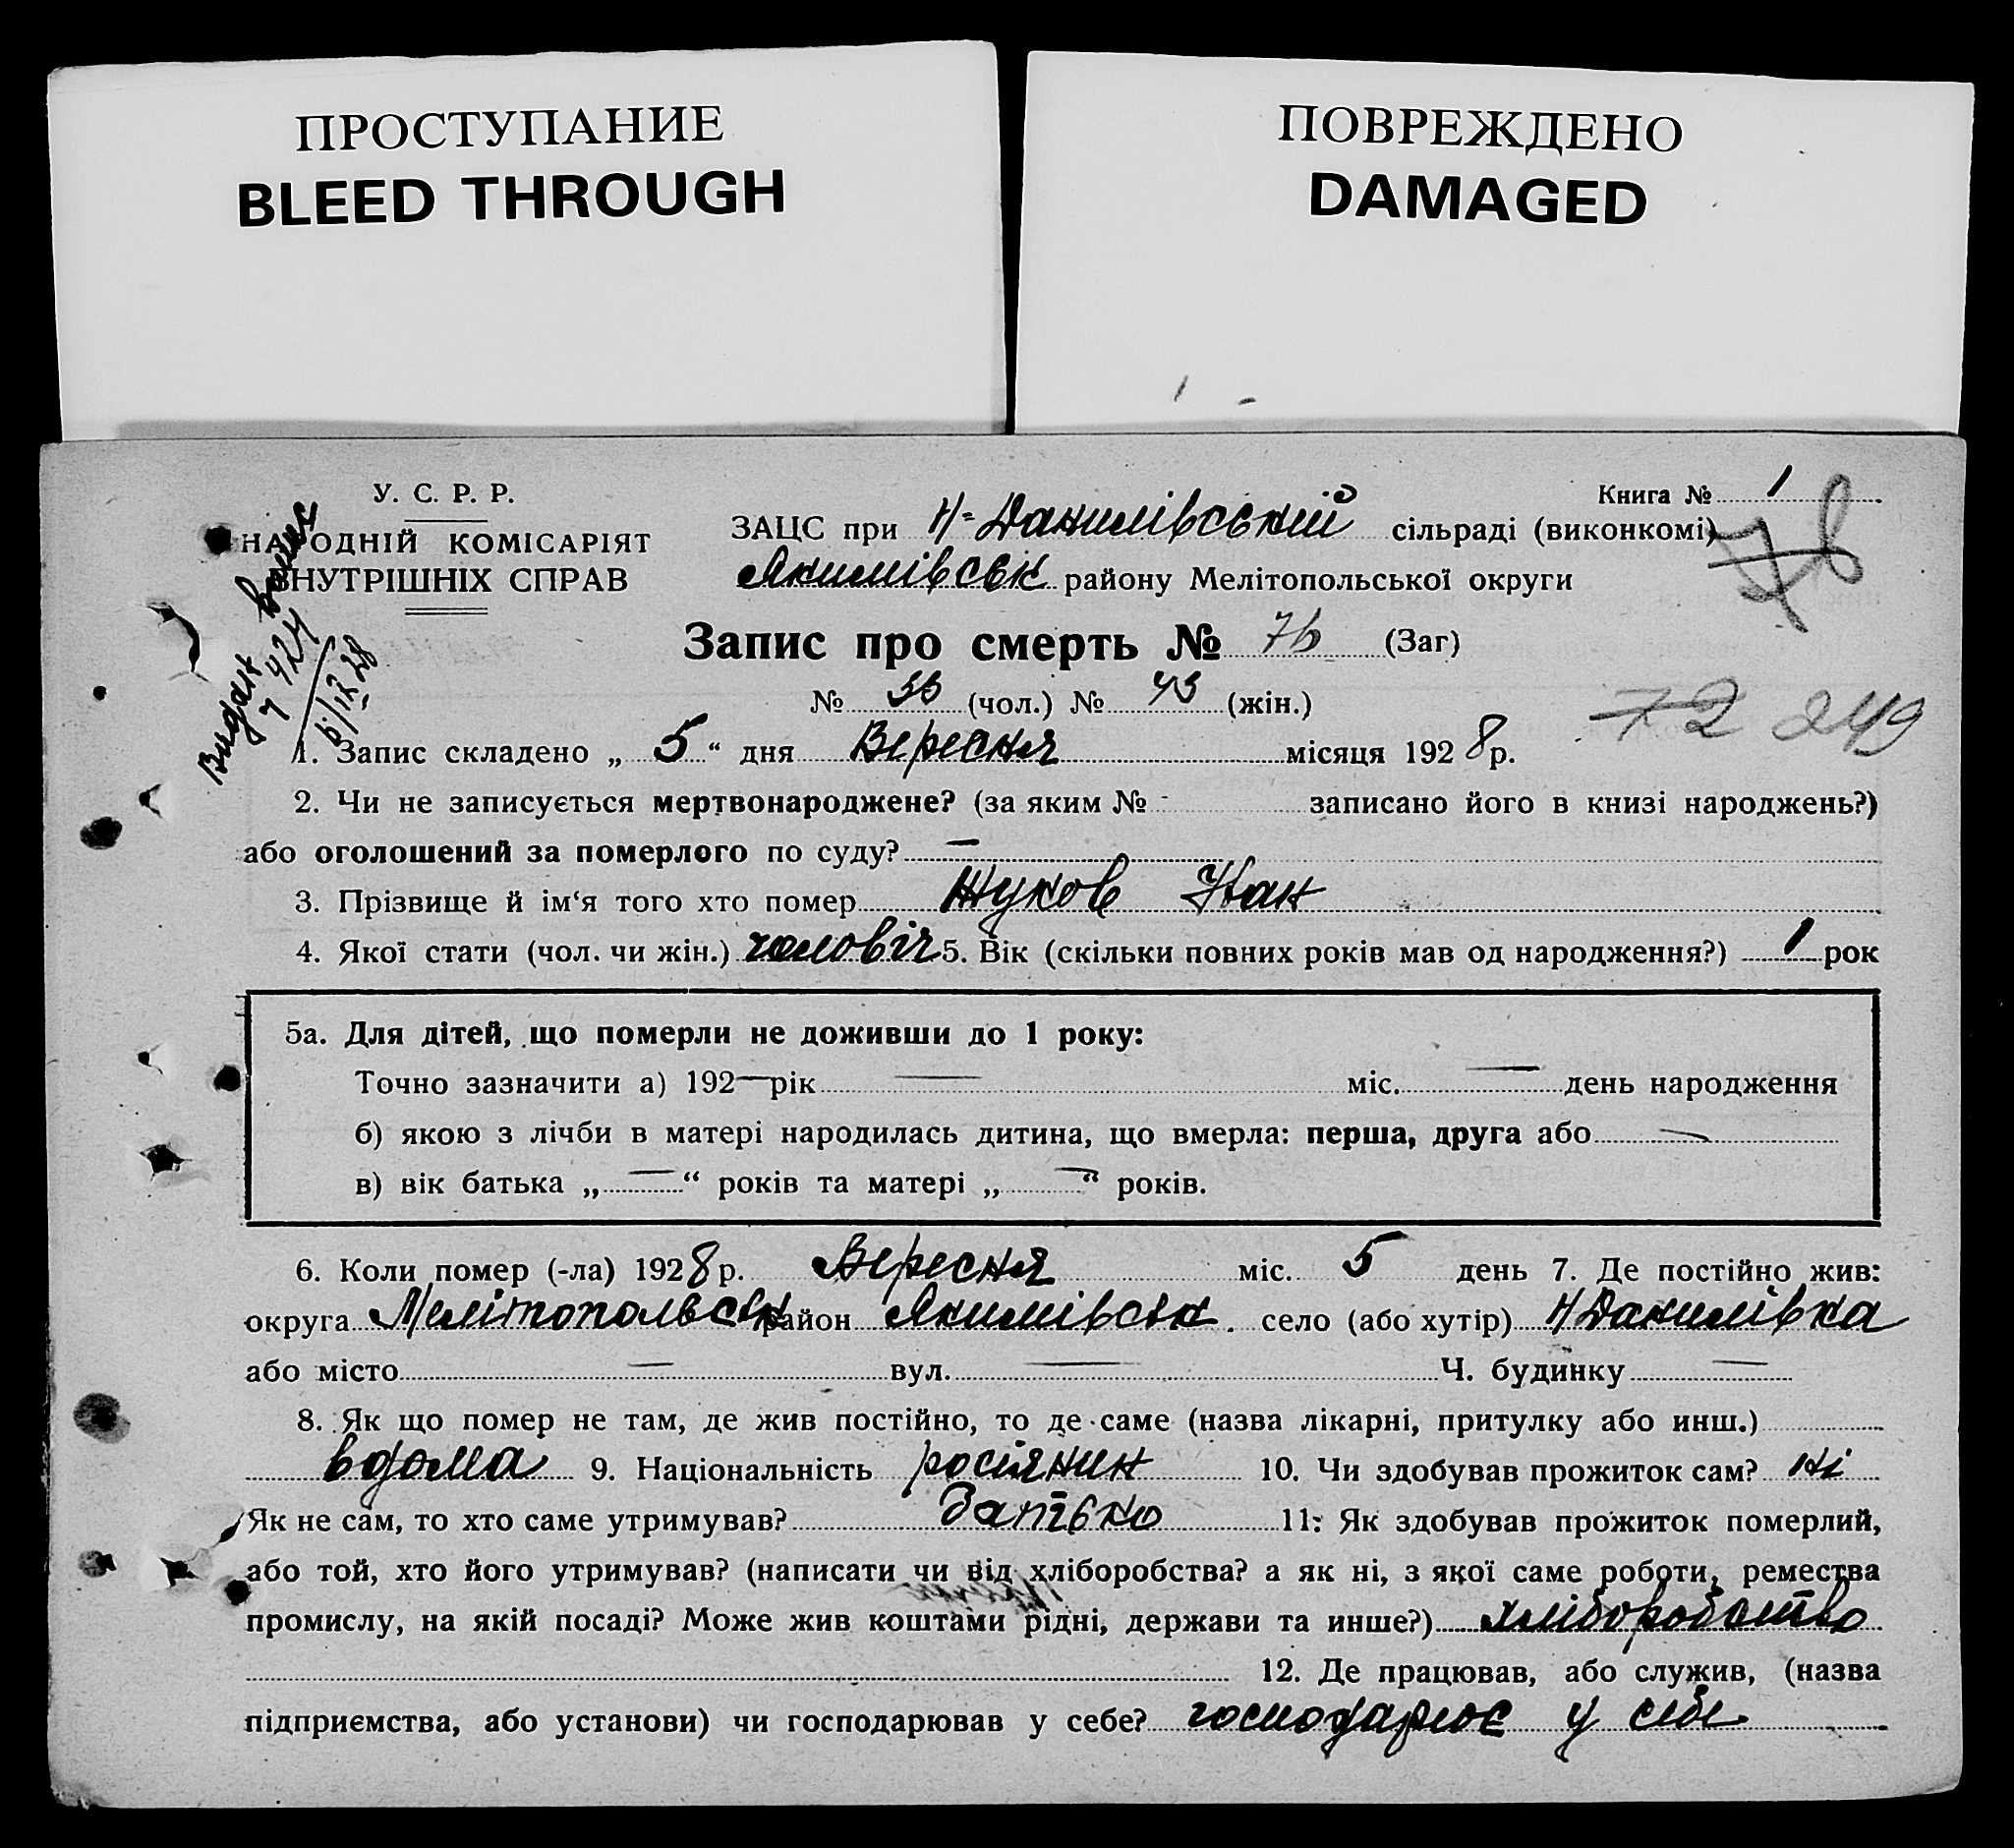 ПРОСТУПАНИЕ
BLEED THROUGH
ПОВРЕЖДЕНО
DAMAGED
Книга № 1
У. С. Р. Р.
НАРОДНІЙ КОМІСАРІЯТ
ВНУТРІШНІХ СПРАВ
ЗАЦС при Н-Данилівський сільраді (виконкомі)
Якимівськ району Мелітопольської округи
Запис про смерть № 76 (Заг)
№ 33 (чол.) № 43 (жін.)
72 249
1. Запис складено „ 5 “ дня Вересня місяця 1928 р.
2. Чи не записується мертвонароджене? (за яким № - записано його в книзі народжень?)
або оголошений за померлого по суду? —
3. Прізвище й ім‘я того хто помер Жуков Іван
4. Якої стати (чол. чи жін.) чоловіч 5. Вік (скільки повних років мав од народження?) 1 рок
5а. Для дітей, що померли не доживши до 1 року:
Точно зазначити а) 192— рік — міс. — день народження
б) якою з лічби в матері народилась дитина, що вмерла: перша, друга або —
в) вік батька „ — “ років та матері „ — “ років.
6. Коли помер (-ла) 1928 р. Вересня міс. 5 день 7. Де постійно жив:
округа Мелітопольськ район Якимівськ. село (або хутір) Н Данилівка
або місто — вул. — Ч. будинку —
8. Як що помер не там, де жив постійно, то де саме (назва лікарні, притулку або инш.)
вдома 9. Національність росіянин 10. Чи здобував прожиток сам? ні
Як не сам, то хто саме утримував? Батько 11. Як здобував прожиток померлий,
або той, хто його утримував? (написати чи від хліборобства? а як ні, з якої саме роботи, ремества
промислу, на якій посаді? Може жив коштами рідні, держави та инше?) хліборобство
12. Де працював, або служив, (назва
підприємства, або установи) чи господарював у себе? господарює у себе